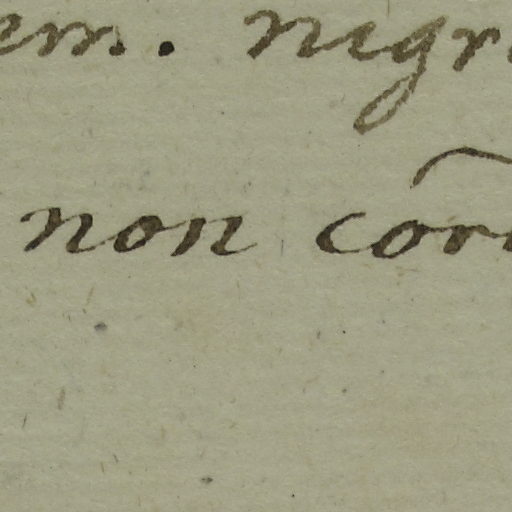 em. nigr
non cor